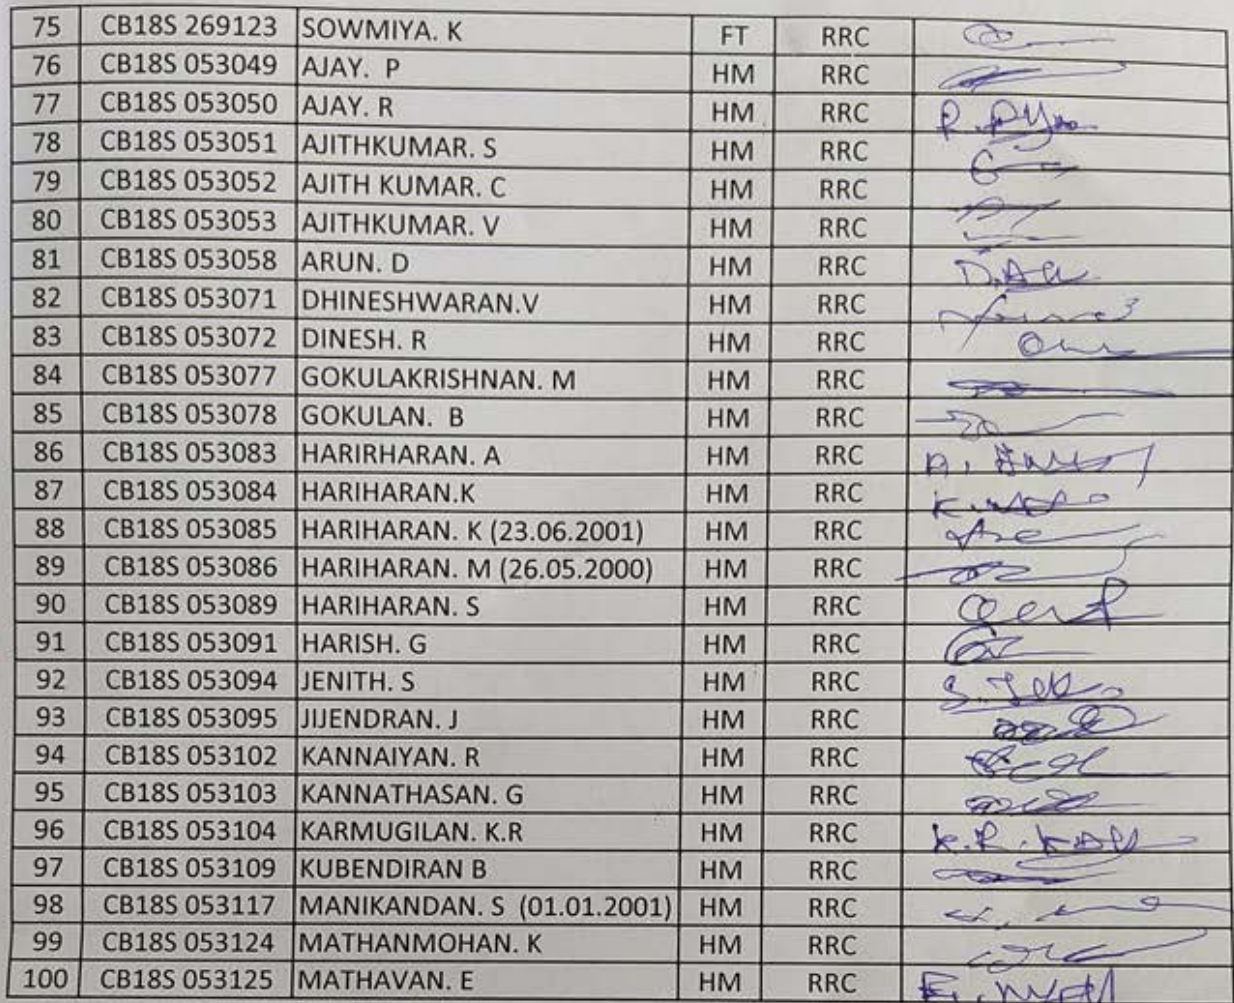 75 CB18S 269123 SOWMIYA. K FT RRC
76 CB18S 053049 AJAY. P HM RRC
77 CB18S 053050 AJAY. R HM RRC
78 CB18S 053051 AJITHKUMAR. S HM RRC
79 CB18S 053052 AJITH KUMAR. C HM RRC
80 CB18S 053053 AJITHKUMAR. V HM RRC
81 CB18S 053058 ARUN. D HM RRC
82 CB18S 053071 DHINESHWARAN.V HM RRC
83 CB18S 053072 DINESH. R HM RRC
84 CB18S 053077 GOKULAKRISHNAN. M HM RRC
85 CB18S 053078 GOKULAN. B HM RRC
86 CB18S 053083 HARIRHARAN. A HM RRC
87 CB18S 053084 HARIHARAN.K HM RRC
88 CB18S 053085 HARIHARAN. K (23.06.2001) HM RRC
89 CB18S 053086 HARIHARAN. M (26.05.2000) HM RRC
90 CB18S 053089 HARIHARAN. S HM RRC
91 CB18S 053091 HARISH. G HM RRC
92 CB18S 053094 JENITH. S HM RRC
93 CB18S 053095 JIJENDRAN. J HM RRC
94 CB18S 053102 KANNAIYAN. R HM RRC
95 CB18S 053103 KANNATHASAN. G HM RRC
96 CB18S 053104 KARMUGILAN. K.R HM RRC
97 CB18S 053109 KUBENDIRAN B HM RRC
98 CB18S 053117 MANIKANDAN. S (01.01.2001) HM RRC
99 CB18S 053124 MATHANMOHAN. K HM RRC
100 CB18S 053125 MATHAVAN. E HM RRC